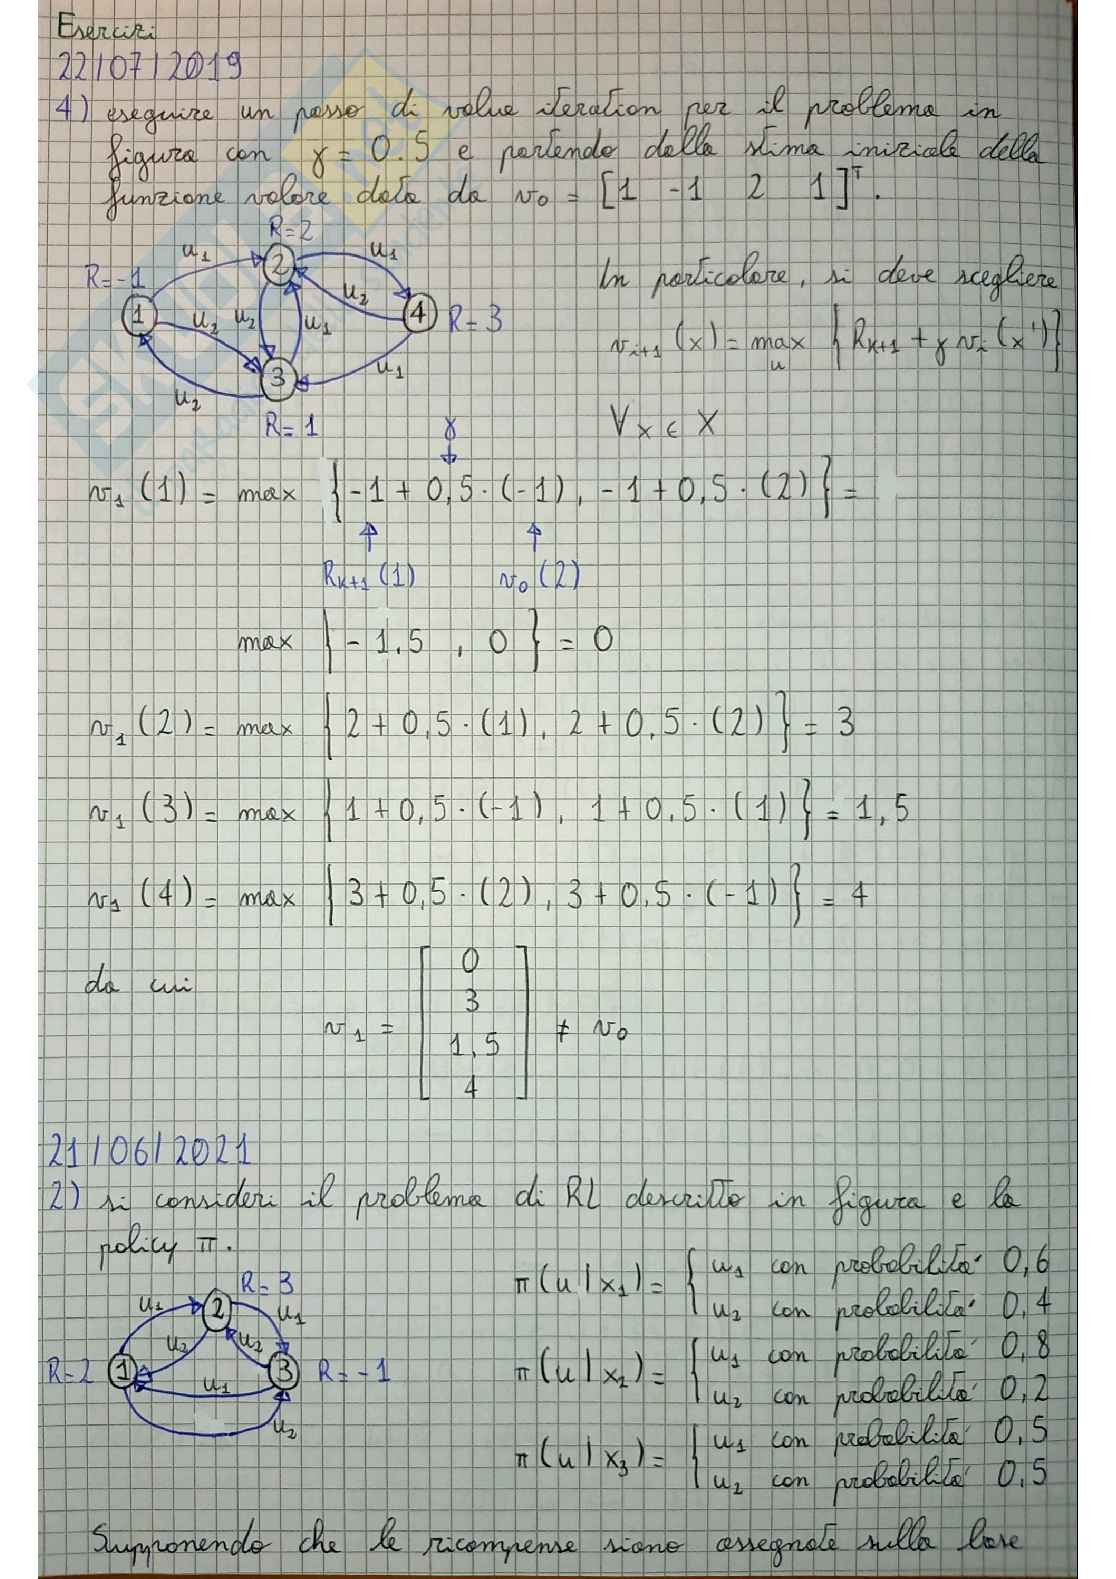 Esercizi
22/07/2019
4) eseguire un passo di value iteration per il problema in
figura con γ = 0.5 e partendo dalla stima iniziale della
funzione valore data da v₀ = [1 -1 2 1]ᵀ.
R=2
u₁ 2 u₁
R=-1
In particolare, si deve scegliere
1 u₂ u₂ u₁ u₂ 4 R=3
v_{i+1}(x) = max_u { R_{k+1} + γ v_i(x') }
u₂ 3 u₁
R=1
∀x ∈ X
γ
v₁(1) = max { -1 + 0,5·(-1), -1 + 0,5·(2) } =
R_{k+1}(1) v₀(2)
max { -1.5 , 0 } = 0
v₁(2) = max { 2 + 0,5·(1), 2 + 0,5·(2) } = 3
v₁(3) = max { 1 + 0,5·(-1), 1 + 0,5·(1) } = 1,5
v₁(4) = max { 3 + 0,5·(2), 3 + 0,5·(-1) } = 4
da cui
v₁ = [ 0
3
1,5
4 ] ≠ v₀
21/06/2021
2) si consideri il problema di RL descritto in figura e la
policy π.
R=3
u₁ 2 u₁
u₂ u₂
R=2 1 3 R=-1
u₁
u₂
π(u|x₁) = { u₁ con probabilità 0,6
u₂ con probabilità 0,4
π(u|x₂) = { u₁ con probabilità 0,8
u₂ con probabilità 0,2
π(u|x₃) = { u₁ con probabilità 0,5
u₂ con probabilità 0,5
Supponendo che le ricompense siano assegnate sulla base